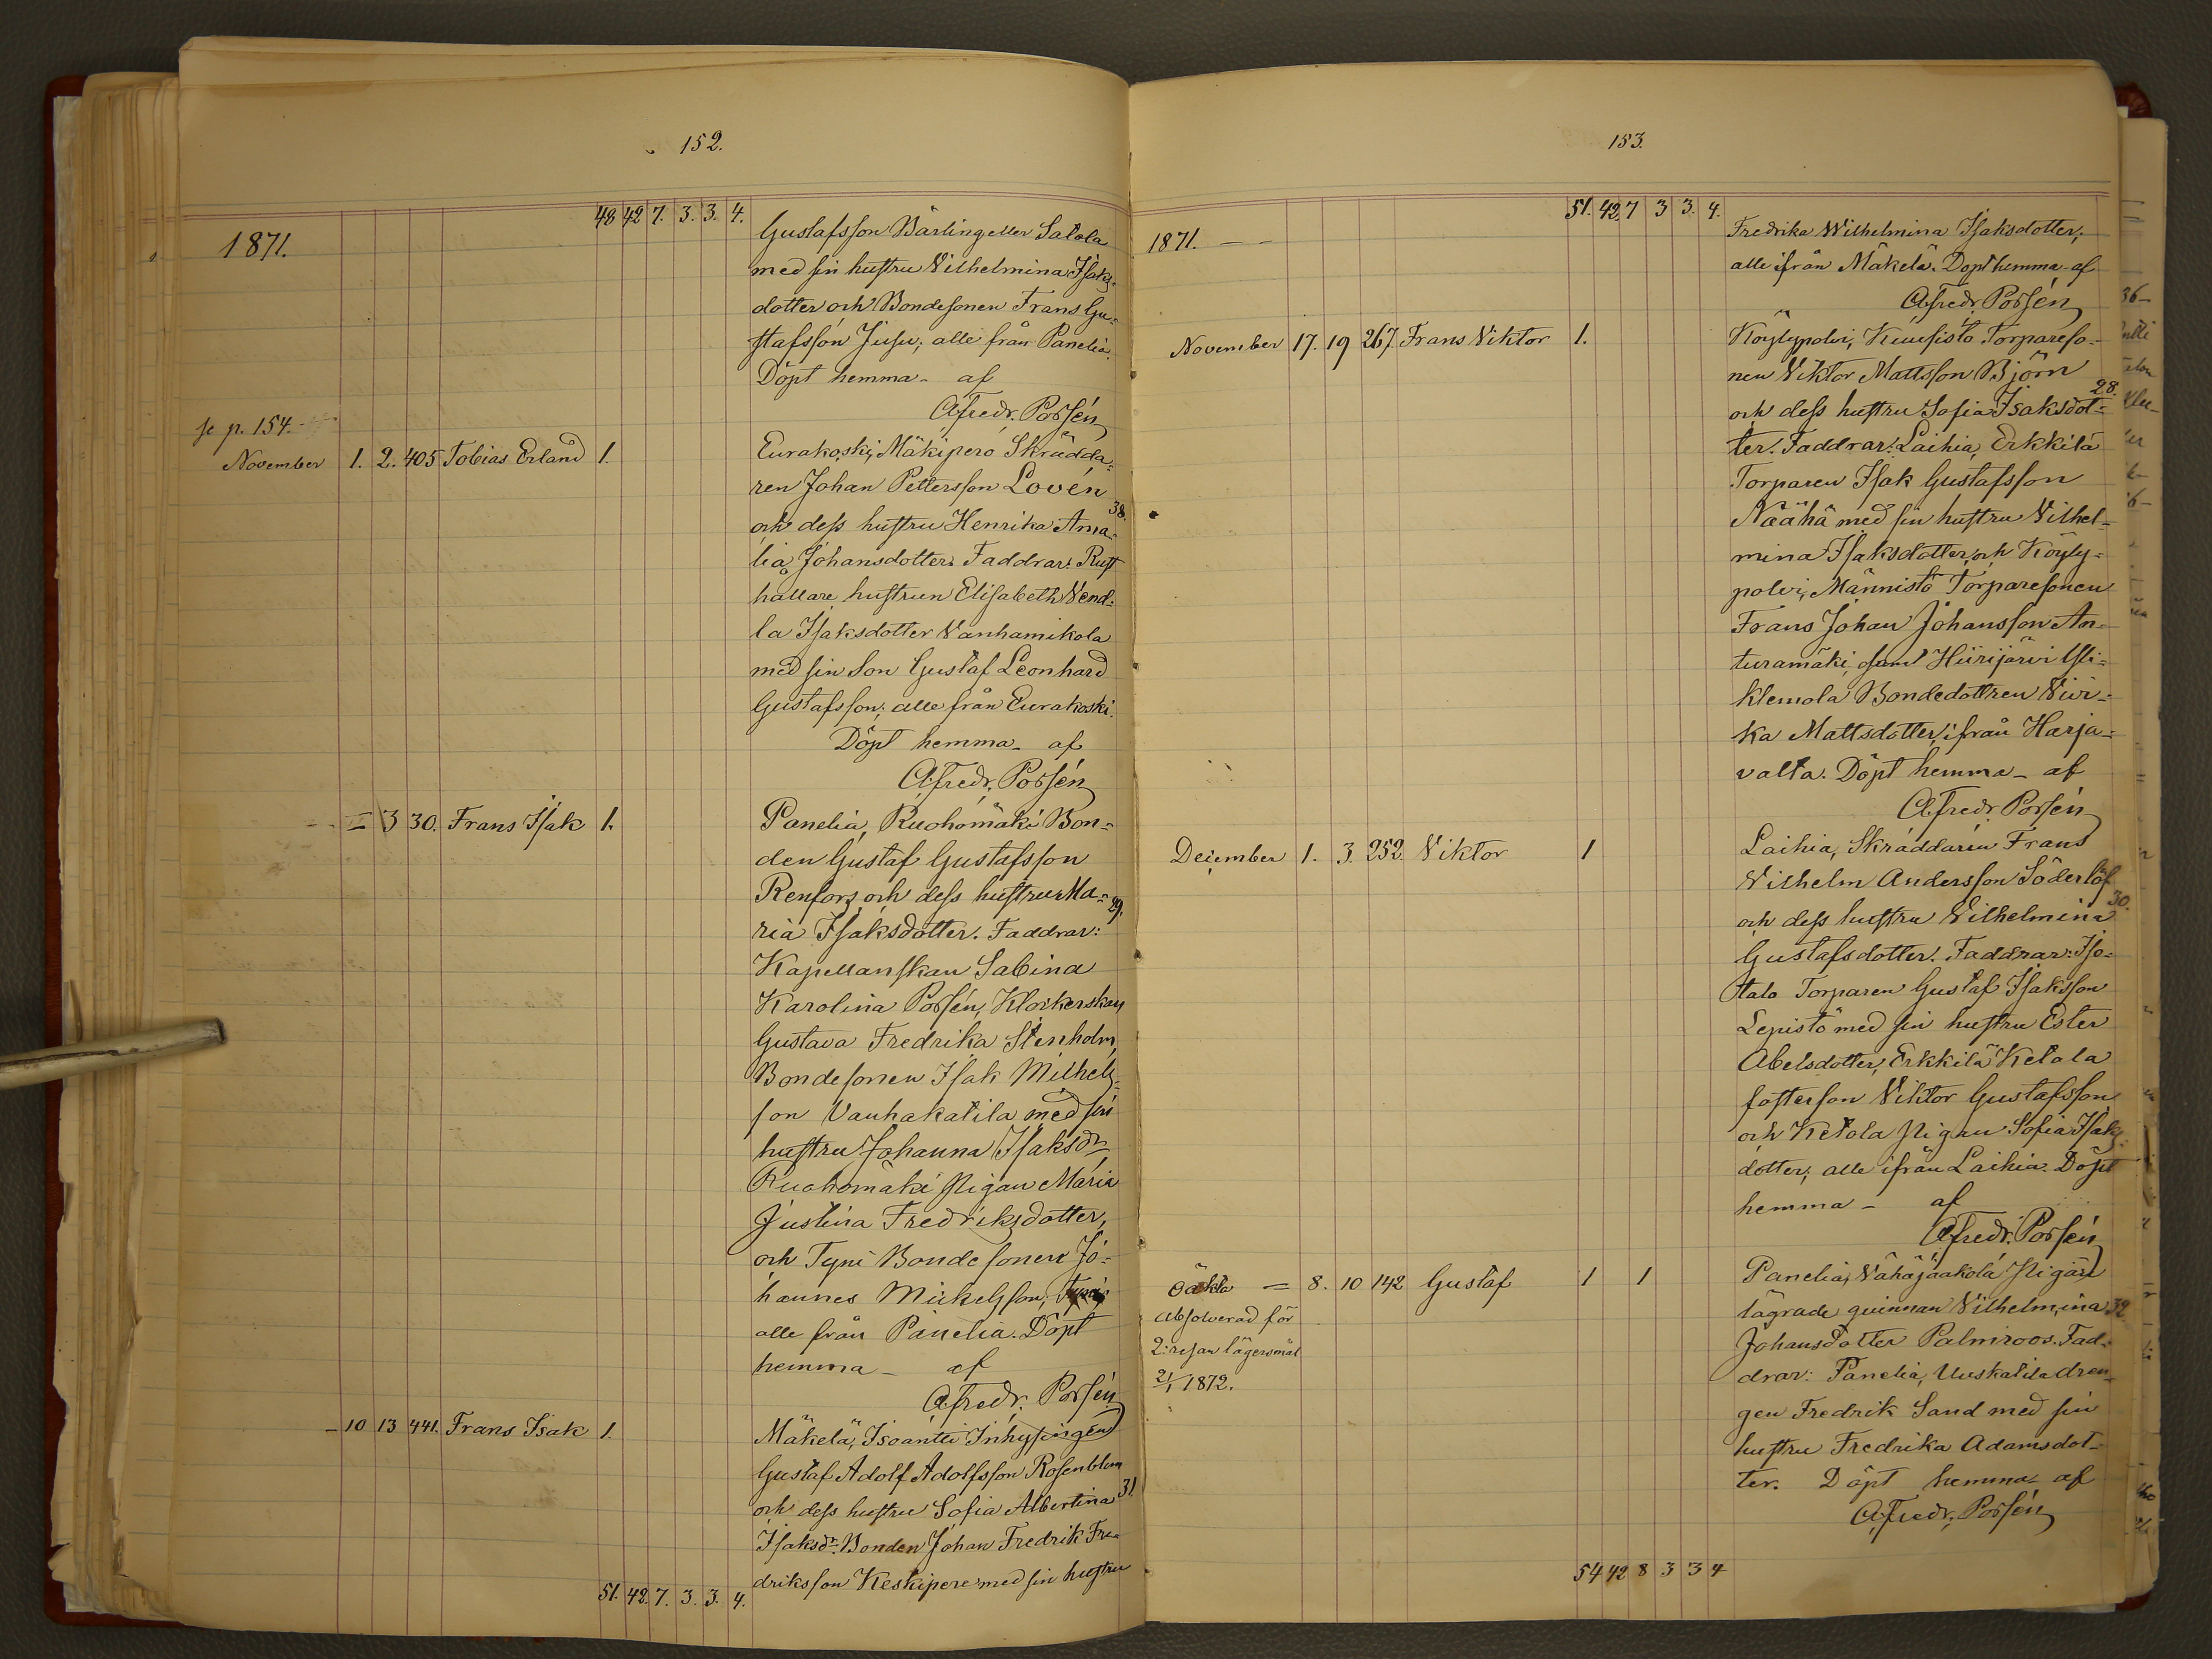 152.
48 42 7. 3. 3. 4.
1871.
Gustafsson Bärling eller Salola
med sin hustru Vilhelmina Isaks-
dotter och Bondesonen Frans Gu-
stafsson Jusu; alle från Panelia.
Döpt hemma - af
A. Fredr. Porsén
se p. 154.
November 1. 2. 405 Tobias Erland 1.
Eurakoski, Mäkiperö Skrädda-
ren Johan Pettersson Lovén
och dess hustru Henrika Ama- 38.
lia Johansdotter. Faddrar: Rust
hållare hustrun Elisabeth Vend-
la Isaksdotter Vanhamikola
med sin Son Gustaf Leonhard
Gustafsson; alle från Eurakoski.
Döpt hemma - af
A. Fredr. Porsén
3 30. Frans Isak 1.
Panelia, Ruohomäki Bon-
den Gustaf Gustafsson
Renfors och dess hustru Ma- 29.
ria Isaksdotter. Faddrar:
Kapellanskan Sabina
Karolina Porsén, Klockerskan
Gustava Fredrika Stenholm,
Bondesonen Isak Mickels-
son Vanhakatila med sin
hustru Johanna Isaksdr,
Ruohomäki Pigan Maria
Justina Fredriksdotter,
och Tyni Bondesonen Jo-
hannes Mickelsson;
alle från Panelia. Döpt
hemma - af
A. Fredr. Porsén
- 10 13 441. Frans Isak 1.
Mäkelä, Isoantti Inhysingen
Gustaf Adolf Adolfsson Rosenblom
och dess hustru Sofia Albertina 31.
Isaksdr. Bonden Johan Fredrik Fre-
driksson Keskipere med sin hustru
51. 42. 7. 3. 3. 4.
153.
51. 42 7 3 3. 4.
1871. - -
Fredrika Wilhelmina Isaksdotter,
alle ifrån Mäkelä. Döpt hemma - af
A. Fredr. Porsén
November 17. 19 267 Frans Viktor 1.
Köylypolvi, Kuusisto Torpareso-
nen Viktor Mattsson Björn
och dess hustru Sofia Isaksdot- 28.
ter. Faddrar: Laihia, Erkkilä
Torparen Isak Gustafsson
Näähä med sin hustru Vilhel-
mina Isaksdotter, och Köyly-
polvi, Männistö Torparesonen
Frans Johan Johansson An-
turamäki, samt Hiirijärvi Yli-
klemola Bondedottren Vivi-
ka Mattsdotter, ifrån Harja-
valta. Döpt hemma - af
A. Fredr. Porsén
December 1. 3. 252. Viktor 1
Laihia, Skräddaren Frans
Vilhelm Andersson Söderlöf
och dess hustru Vilhelmina 30.
Gustafsdotter. Faddrar: Iso-
talo Torparen Gustaf Isaksson
Lepistö med sin hustru Ester
Abelsdotter, Erkkilä Ketola
fosterson Viktor Gustafsson
och Ketola Pigan Sofia Isaks-
dotter; alle ifrån Laihia. Döpt
hemma - af
A. Fredr. Porsén
Oäkta = 8. 10 142 Gustaf 1 1
Absolverad för
2: resan lägersmål
2/1 1872.
Panelia, Vähäjaakola Pigan
lägrade quinnan Vilhelmina 32.
Johansdotter Palmroos. Fad-
drar: Panelia, Uuskatila drän-
gen Fredrik Sand med sin
hustru Fredrika Adamsdot-
ter. Döpt hemma - af
A. Fredr. Porsén
54 42 8 3 3 4